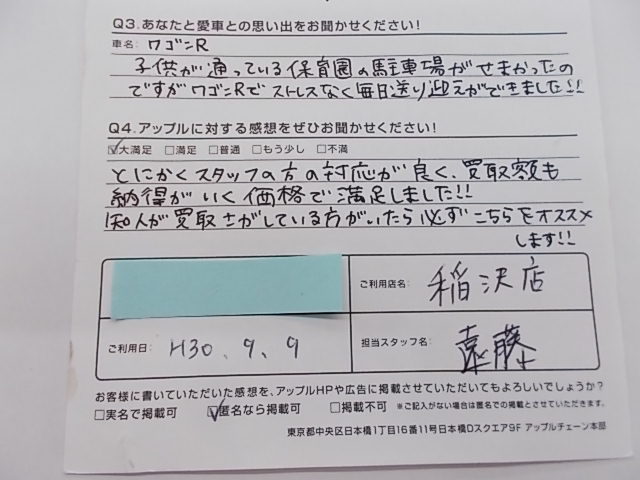 Q3.あなたと愛車との思い出をお聞かせください!
車名: ワゴンR
子供が通っている保育園の駐車場がせまかったの
ですがワゴンRでストレスなく毎日送り迎えができました!!
Q4.アップルに対する感想をぜひお聞かせください!
☑大満足 □満足 □普通 □もう少し □不満
とにかくスタッフの方の対応が良く、買取額も
納得がいく価格で満足しました!!
知人が買取さがしている方がいたら必ずこちらをオススメ
します!!
ご利用店名: 稲沢店
ご利用日: H30.9.9
担当スタッフ名: 遠藤
お客様に書いていただいた感想を、アップルHPや広告に掲載させていただいてもよろしいでしょうか?
□実名で掲載可 ☑匿名なら掲載可 □掲載不可 ※ご記入がない場合は匿名での掲載とさせていただきます。
東京都中央区日本橋1丁目16番11号日本橋Dスクエア9F アップルチェーン本部